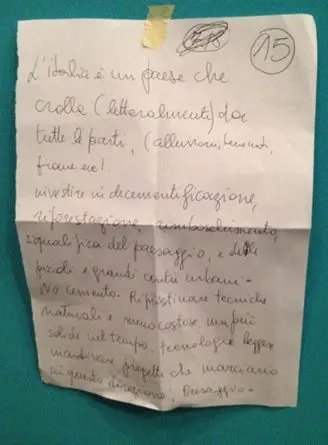 15
L'italia è un paese che
crolla (letteralmente) da
tutte le parti, (alluvioni, terremoti,
frane ecc!
investire in decementificazione,
riforestazione, rimboschimento,
riqualifica del paesaggio, e delle
piccoli e grandi centri urbani -
No cemento. Ripristinare tecniche
naturali e meno costose, ma più
solide nel tempo, tecnologie leggere
progetti che marciano
in questa direzione, Paesaggio -